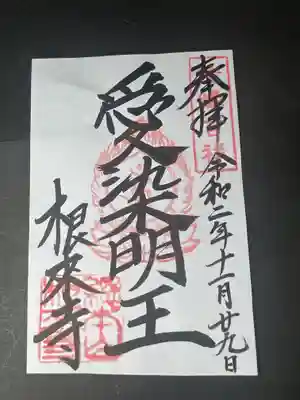 奉拝 令和二年十一月廿九日
愛染明王
根來寺